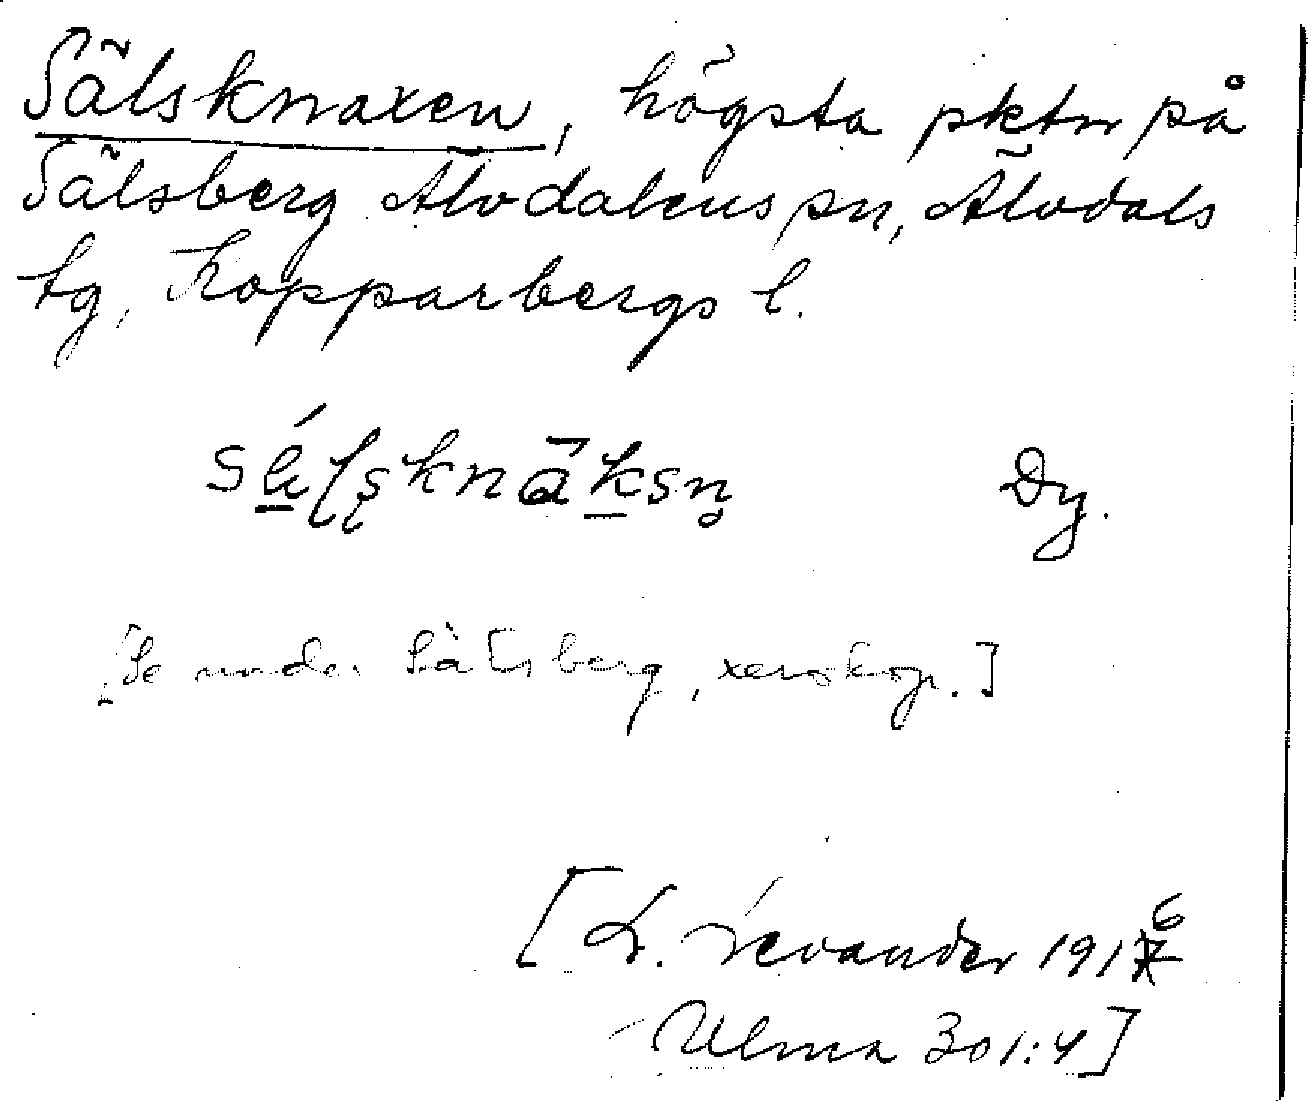 Sälsknaxen, högsta pktn på
Sälsberg Älvdalens sn, Älvdals
tg, Kopparbergs l.
Dy.
[Se under Sälsberg, xerokop.]
[L. Levander 1916
Ulma 301:4]